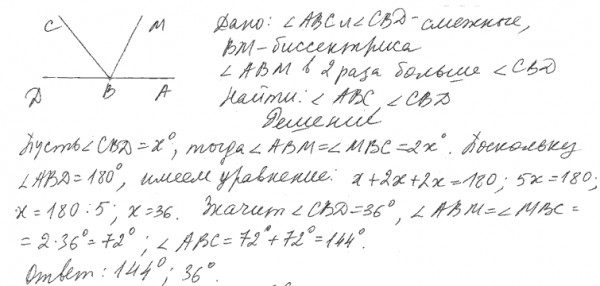 C M
D B A
Дано: ∠ABC и ∠CBD - смежные,
BM - биссектриса
∠ABM в 2 раза больше ∠CBD
Найти: ∠ABC, ∠CBD
Решение
Пусть ∠CBD = x°, тогда ∠ABM = ∠MBC = 2x°. Поскольку
∠ABD = 180°, имеем уравнение: x + 2x + 2x = 180; 5x = 180;
x = 180 : 5; x = 36. Значит ∠CBD = 36°, ∠ABM = ∠MBC =
= 2·36° = 72°; ∠ABC = 72° + 72° = 144°.
Ответ: 144°; 36°.